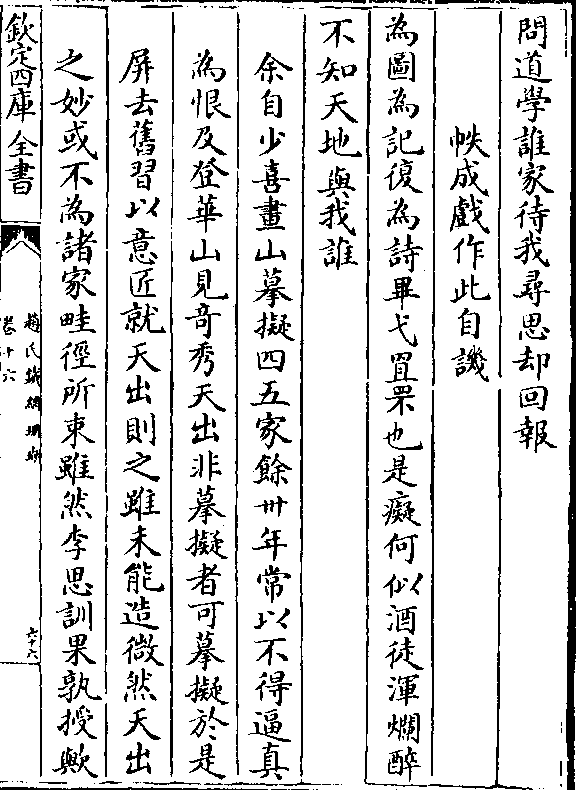 問道學誰家待我尋思却回報
帙成戲作此自譏
為圖為記復為詩畢弋罝罘也是癡何似酒徒渾爛醉
不知天地與我誰
余自少喜畫山摹擬四五家餘卅年常以不得逼真
為恨及登華山見竒秀天出非摹擬者可摹擬於是
屏去舊習以意匠就天出則之雖未能造微然天出
之妙或不為諸家畦徑所束雖然李思訓果孰授歟
欽定四庫全書
趙氏鐵網珊瑚
卷十六
六十六